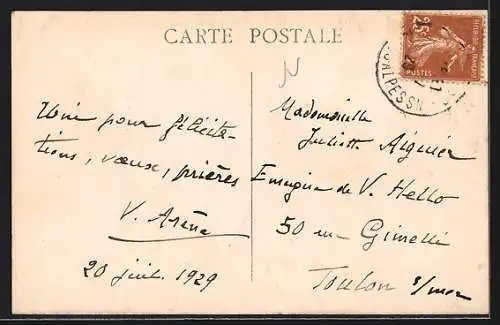 CARTE POSTALE
25c
POSTES
Unie pour félicita-
tions, vœux, prières
V. Aréna
20 juil. 1929
Mademoiselle
Juliette Aiguier
Enseigne de V. Hello
50 rue Gimelli
Toulon s/mer